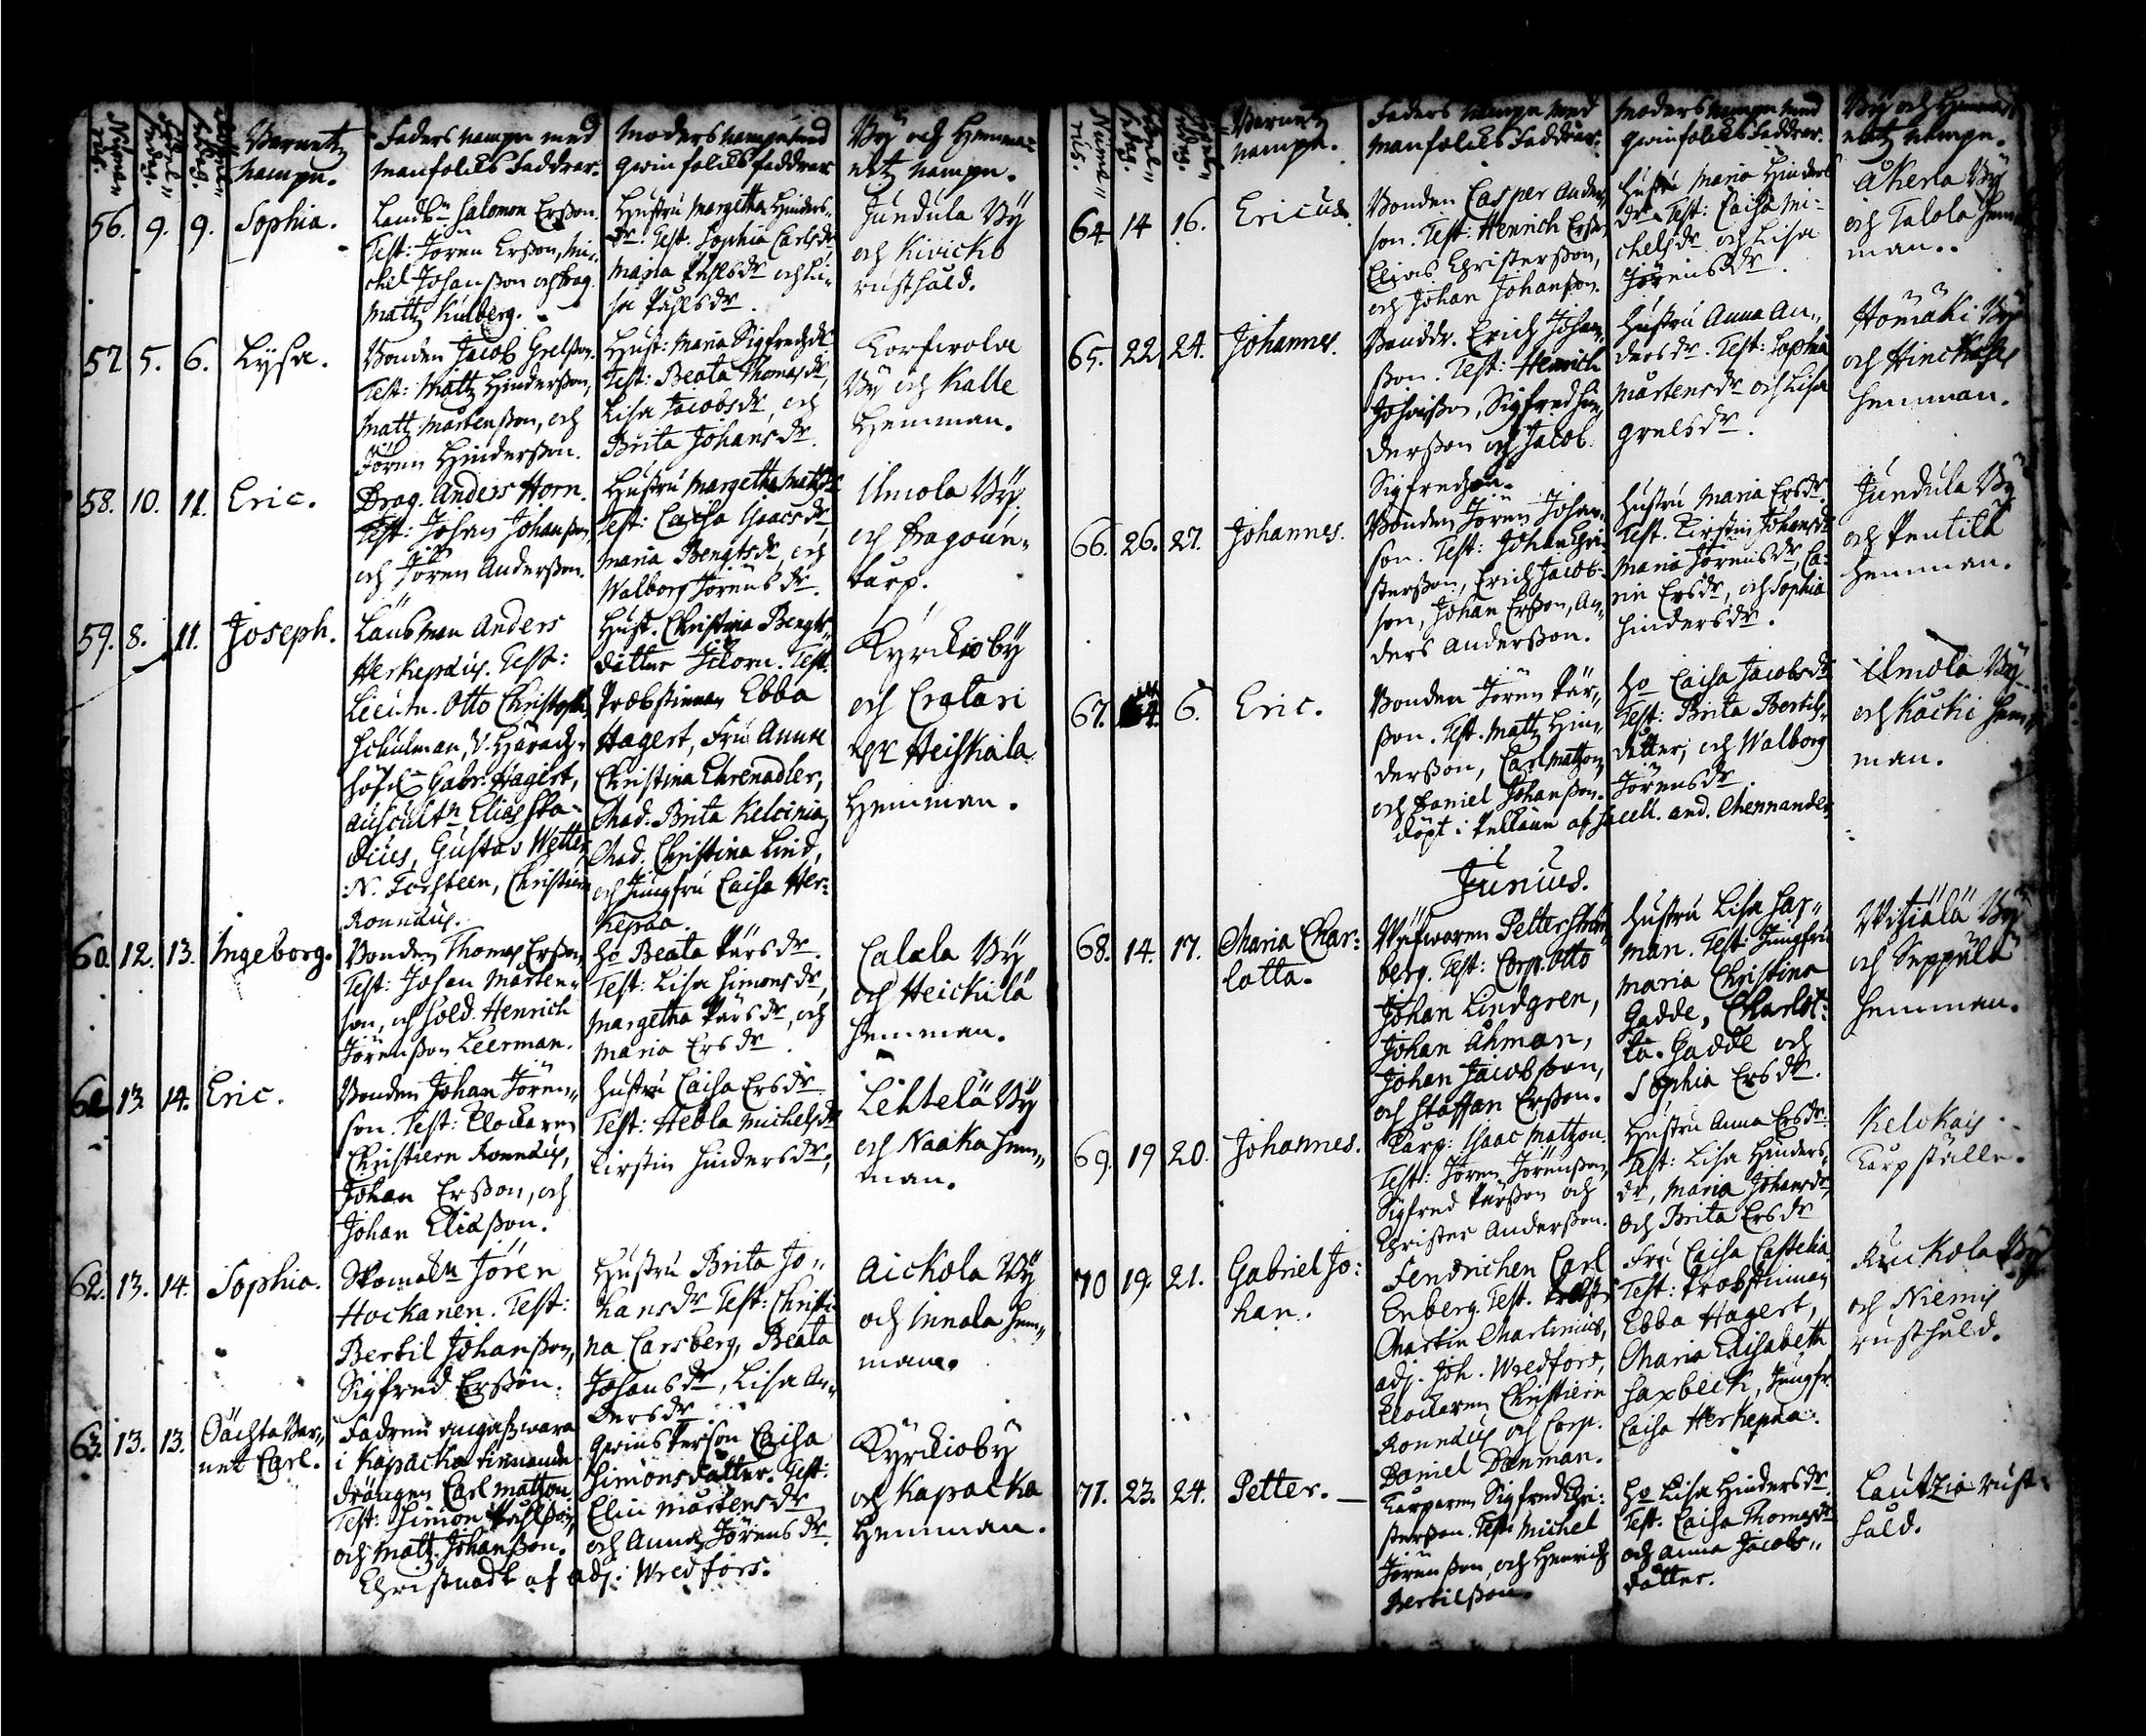 Numerus. Födelsedag. Döpelsedag.
Barnetz
nampn.
Faders nampn med
manfolcks Faddrar.
Moders nampn med
qwinfolcks faddrar
By och Hemma-
netz nampn.
56. 9. 9. Sophia.
Landbn Salomon Ersson.
Test: Jören Ersson, Mi-
chel Johansson och Drag.
Mattz Kulberg.
Hustru Margetha Hinders-
dr. Test. Sophia Carlsdr
Maria Påhlsdr och Li-
sa Påhlsdr.
Jundula By
och Kivicko
rusthald.
57 5. 6. Lysa.
Bonden Jacob Grelsson.
Test: Mattz Hindersson,
Matt Mårtensson, och
Jören Hindersson.
Hust: Maria Sigfredzdr
Test: Beata Thomasdr,
Lisa Jacobsdr, och
Brita Johansdr.
Korfwola
By och Kalle
Hemman.
58. 10. 11. Eric.
Drag. Anders Horn.
Test: Johan Johansson,
och Jören Andersson.
Hustru Margetha Mattsdr
Test: Caisa Isaacsdr
Maria Bengtsdr, och
Walborg Jörensdr.
Ilmola By.
och Dragoun-
tarp.
59. 8. 11. Joseph.
Länsman Anders
Herkepæus. Test:
Lieutn. Otto Christoph.
Schulman, V. Härads-
höfd. Gabr. Hagert,
auscultn Elias Pla-
dius, Gustav Wetter
N. Torsteen, Christiern
Ronnæus.
Hust. Christina Bengts-
dåtter Florn. Test.
Probstinnan Ebba
Hagert, Fru Anna
Christina Ehrenadler,
Mad. Brita Kelcinia,
Mad. Christina Lind,
och Jungfru Caisa Her-
kepæa.
Kyrckioby
och Cratari
Heiskala
Hemman.
60. 12. 13. Ingeborg.
Bonden Thomas Ersson,
Test: Johan Mårten-
son, och Sold. Henrich
Jörensson Leerman.
Ho Beata Pärsdr.
Test: Lisa Simonsdr,
Margetha Pärsdr, och
Maria Ersdr.
Calala By
och Heickilä
Hemman.
61. 13. 14. Eric.
Bonden Johan Jören-
son. Test: Clockaren
Christiern Ronnæus,
Johan Ersson, och
Johan Eliasson.
Hustru Caisa Ersdr
Test: Hebla Michelsdr
Kirstin Hindersdr,
Lehtelä By
och Naaka Hem-
man.
62. 13. 14. Sophia.
Skomakn Jören
Hockanen. Test:
Bertil Johansson,
Sigfred Ersson.
Hustru Brita Jo-
hansdr Test: Christi-
na Carsberg, Beata
Johansdr, Lisa An-
dersdr
Aickola By
och Innala Hem-
man.
63. 13. 13. Oächta Bar-
net Carl.
Fadren wara
i Kapacka tienande
drängen Carl Matzon
Test: Simon Påhlsson,
och Matz Johansson.
Christnadt af adj: Wredfors.
Qwins Person Caisa
Simonsdåtter. Test:
Elin Mårtensdr
och Anna Jörensdr
Kyrckioby
och Kapacka
Hemman.
Numerus.
Barnetz
nampn.
Faders nampn med
manfolcks Faddrar.
Moders nampn med
qwinfolcks Faddrar.
By och Hemma-
netz nampn.
64 14 16. Ericus.
Bonden Casper Anders-
son. Test: Henrich Ersson,
Elias Christersson,
och Johan Johansson.
Hustru Maria Hinders
dr. Test: Caisa Mi-
chelsdr och Lisa
Jörensdr.
Ahena By
och Talola Hem-
man.
65. 22 24. Johannes.
Bonddr. Erich Johan-
sson. Test: Henrich
Johansson, Sigfred Hin-
dersson och Jacob
Sigfredsson.
Hustru Anna An-
dersdr. Test: Sophia
Mårtensdr och Lisa
Grelsdr.
Homäki By
och Hinckasis
Hemman.
66. 26. 27. Johannes.
Bonden Jören Johan-
son. Test: Johan Chri-
stersson, Erich Jacob-
son, Johan Ersson, An-
ders Andersson.
Hustru Maria Ersdr.
Test. Kirstin Johansdr
Maria Jörensdr, Ca-
rin Ersdr, och Sophia
Hindersdr.
Jundula By
och Pentilä
Hemman.
67. 6. Eric.
Bonden Jören Pär-
sson. Test. Matz Hin-
dersson, Carl Matzon,
och Daniel Johansson.
Döpt i Pelkäne af Sacell. And. Mennander
Ho Caisa Jacobsdr
Test: Brita Bertils-
dåtter, och Walborg
Jörensdr.
Ilmola By
och Kacki Hem-
man.
Junius.
68. 14. 17. Maria Char-
lotta.
Wäfwaren Petter Ström-
berg. Test: Corp. Otto
Johan Lindgren,
Johan Åhman,
Johan Jacobsson,
och Staffan Ersson.
Hustru Lisa Sax-
man. Test: Jungfru
Maria Christina
Gadde, Charlot-
ta Gadde och
Sophia Ersdr.
Witiälä By
och Seppälä
Hemman.
69. 19 20. Johannes.
Tarp: Isaac Matzon.
Test: Jören Jörensson,
Sigfred Pärsson och
Christer Andersson.
Hustru Anna Ersdr.
Test: Lisa Hinders-
dr, Maria Johansdr,
och Brita Ersdr
Kelokais
Tarpställe.
70 19. 21. Gabriel Jo-
han.
Fendrichen Carl
Enberg. Test. Probst
Martin Martinius,
adj. Joh. Wredfors,
Clockaren Christiern
Ronnæus och Corp.
Daniel Danman.
Fru Caisa Castelia
Test: Probstinnan
Ebba Hagert,
Maria Elisabeth
Saxbeck, Jungfr.
Caisa Herkepæa.
Ruckola By
och Niemis
rusthald.
71. 23. 24. Petter.
Tarparen Sigfred Chri-
stersson. Test. Michel
Jörensson, och Henrich
Bertilsson.
Ho Lisa Hindersdr.
Test. Caisa Thomasdr
och Anna Jacobs-
dåtter.
Lautzia rust-
hald.